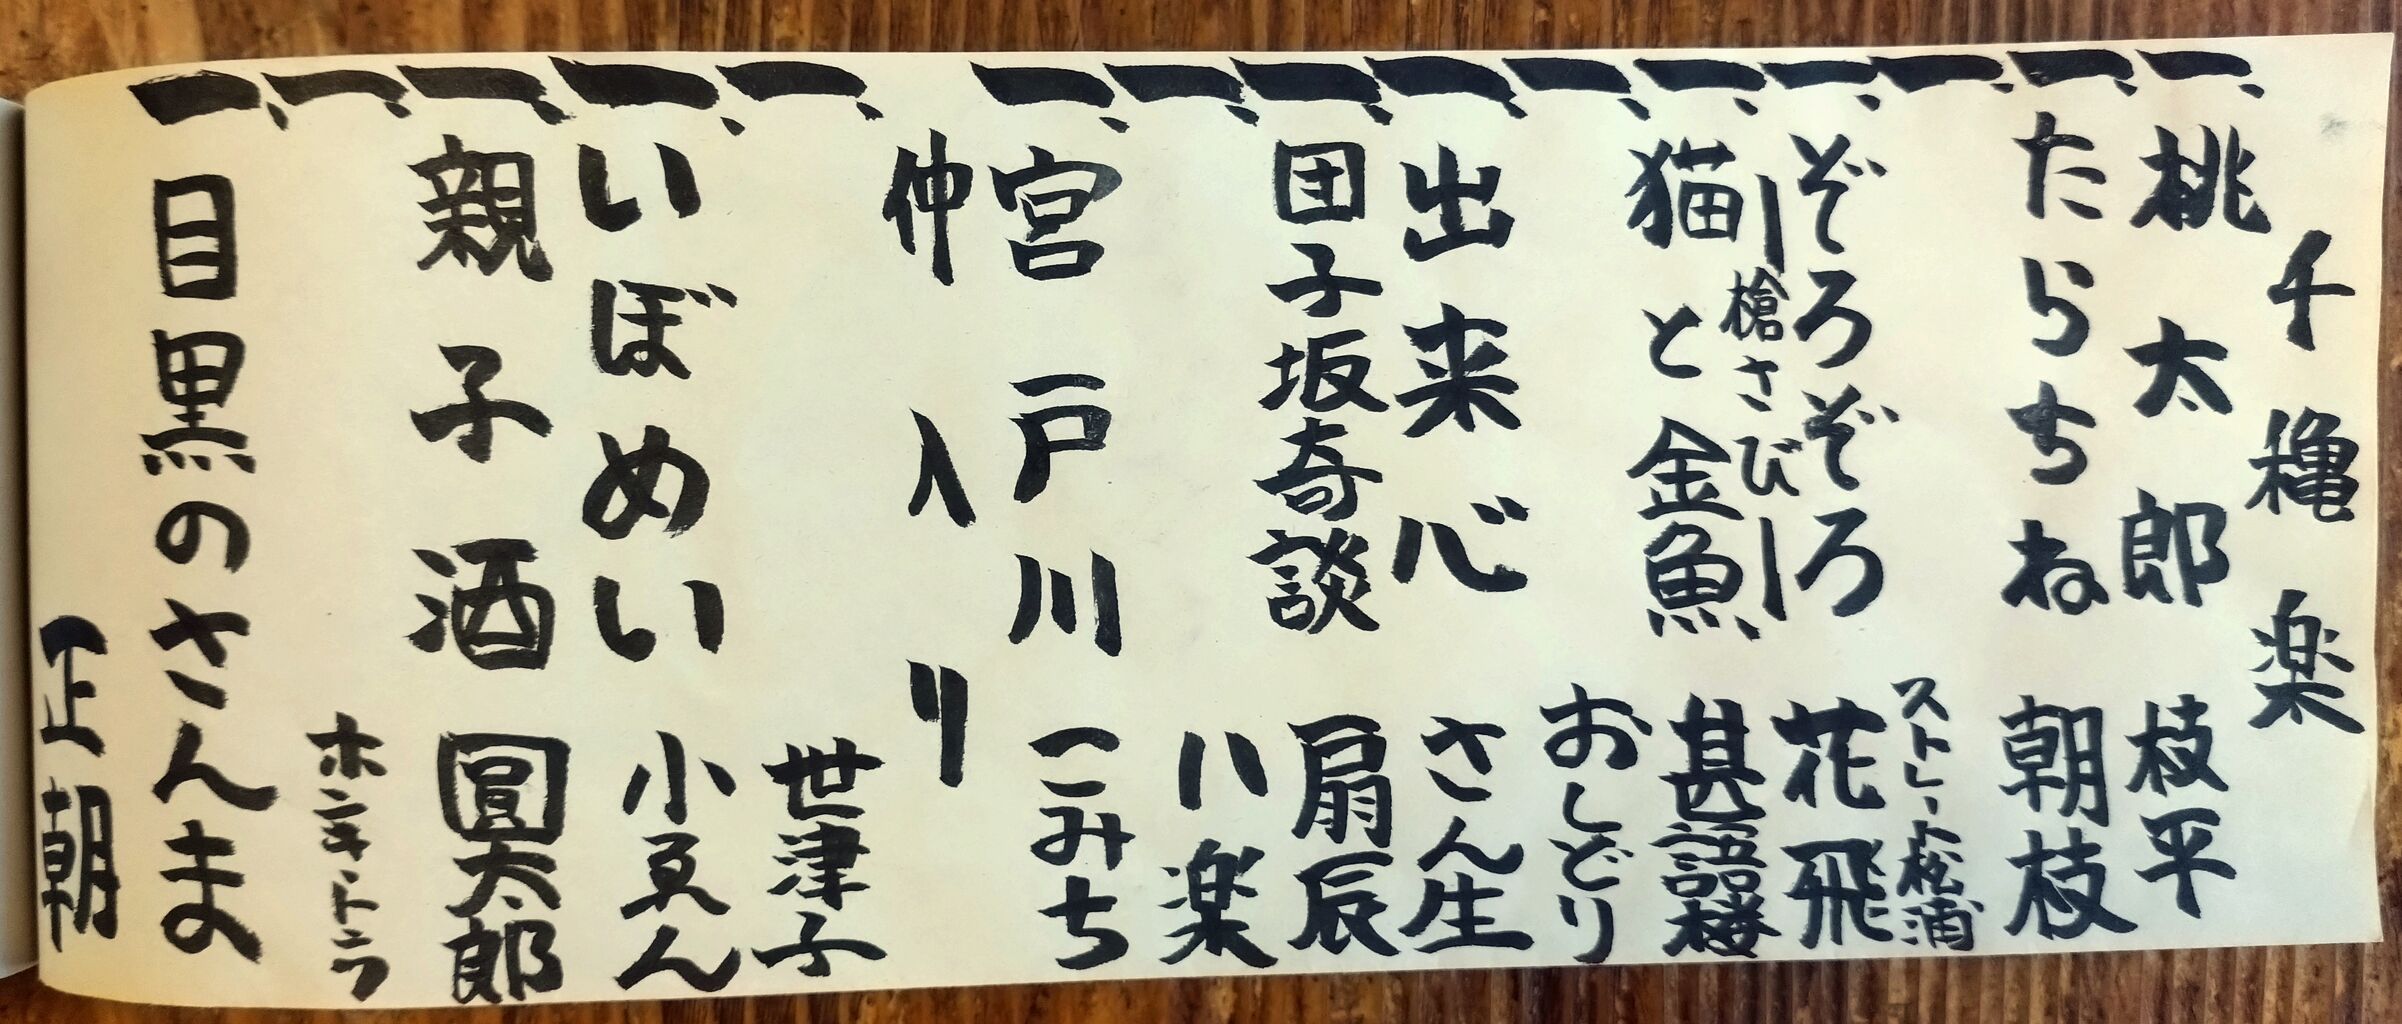 千穐楽
一、桃太郎 枝平
一、たらちね 朝枝
一、 ストレート松浦
一、ぞろぞろ 花飛
ー槍さびー
一、猫と金魚 甚語楼
一、 おしどり
一、出来心 さん生
一、団子坂奇談 扇辰
一、 八楽
一、宮戸川 こみち
仲入り
一、 世津子
一、いぼめい 小ゑん
一、親子酒 圓太郎
一、 ホンキートンク
一、目黒のさんま
正朝